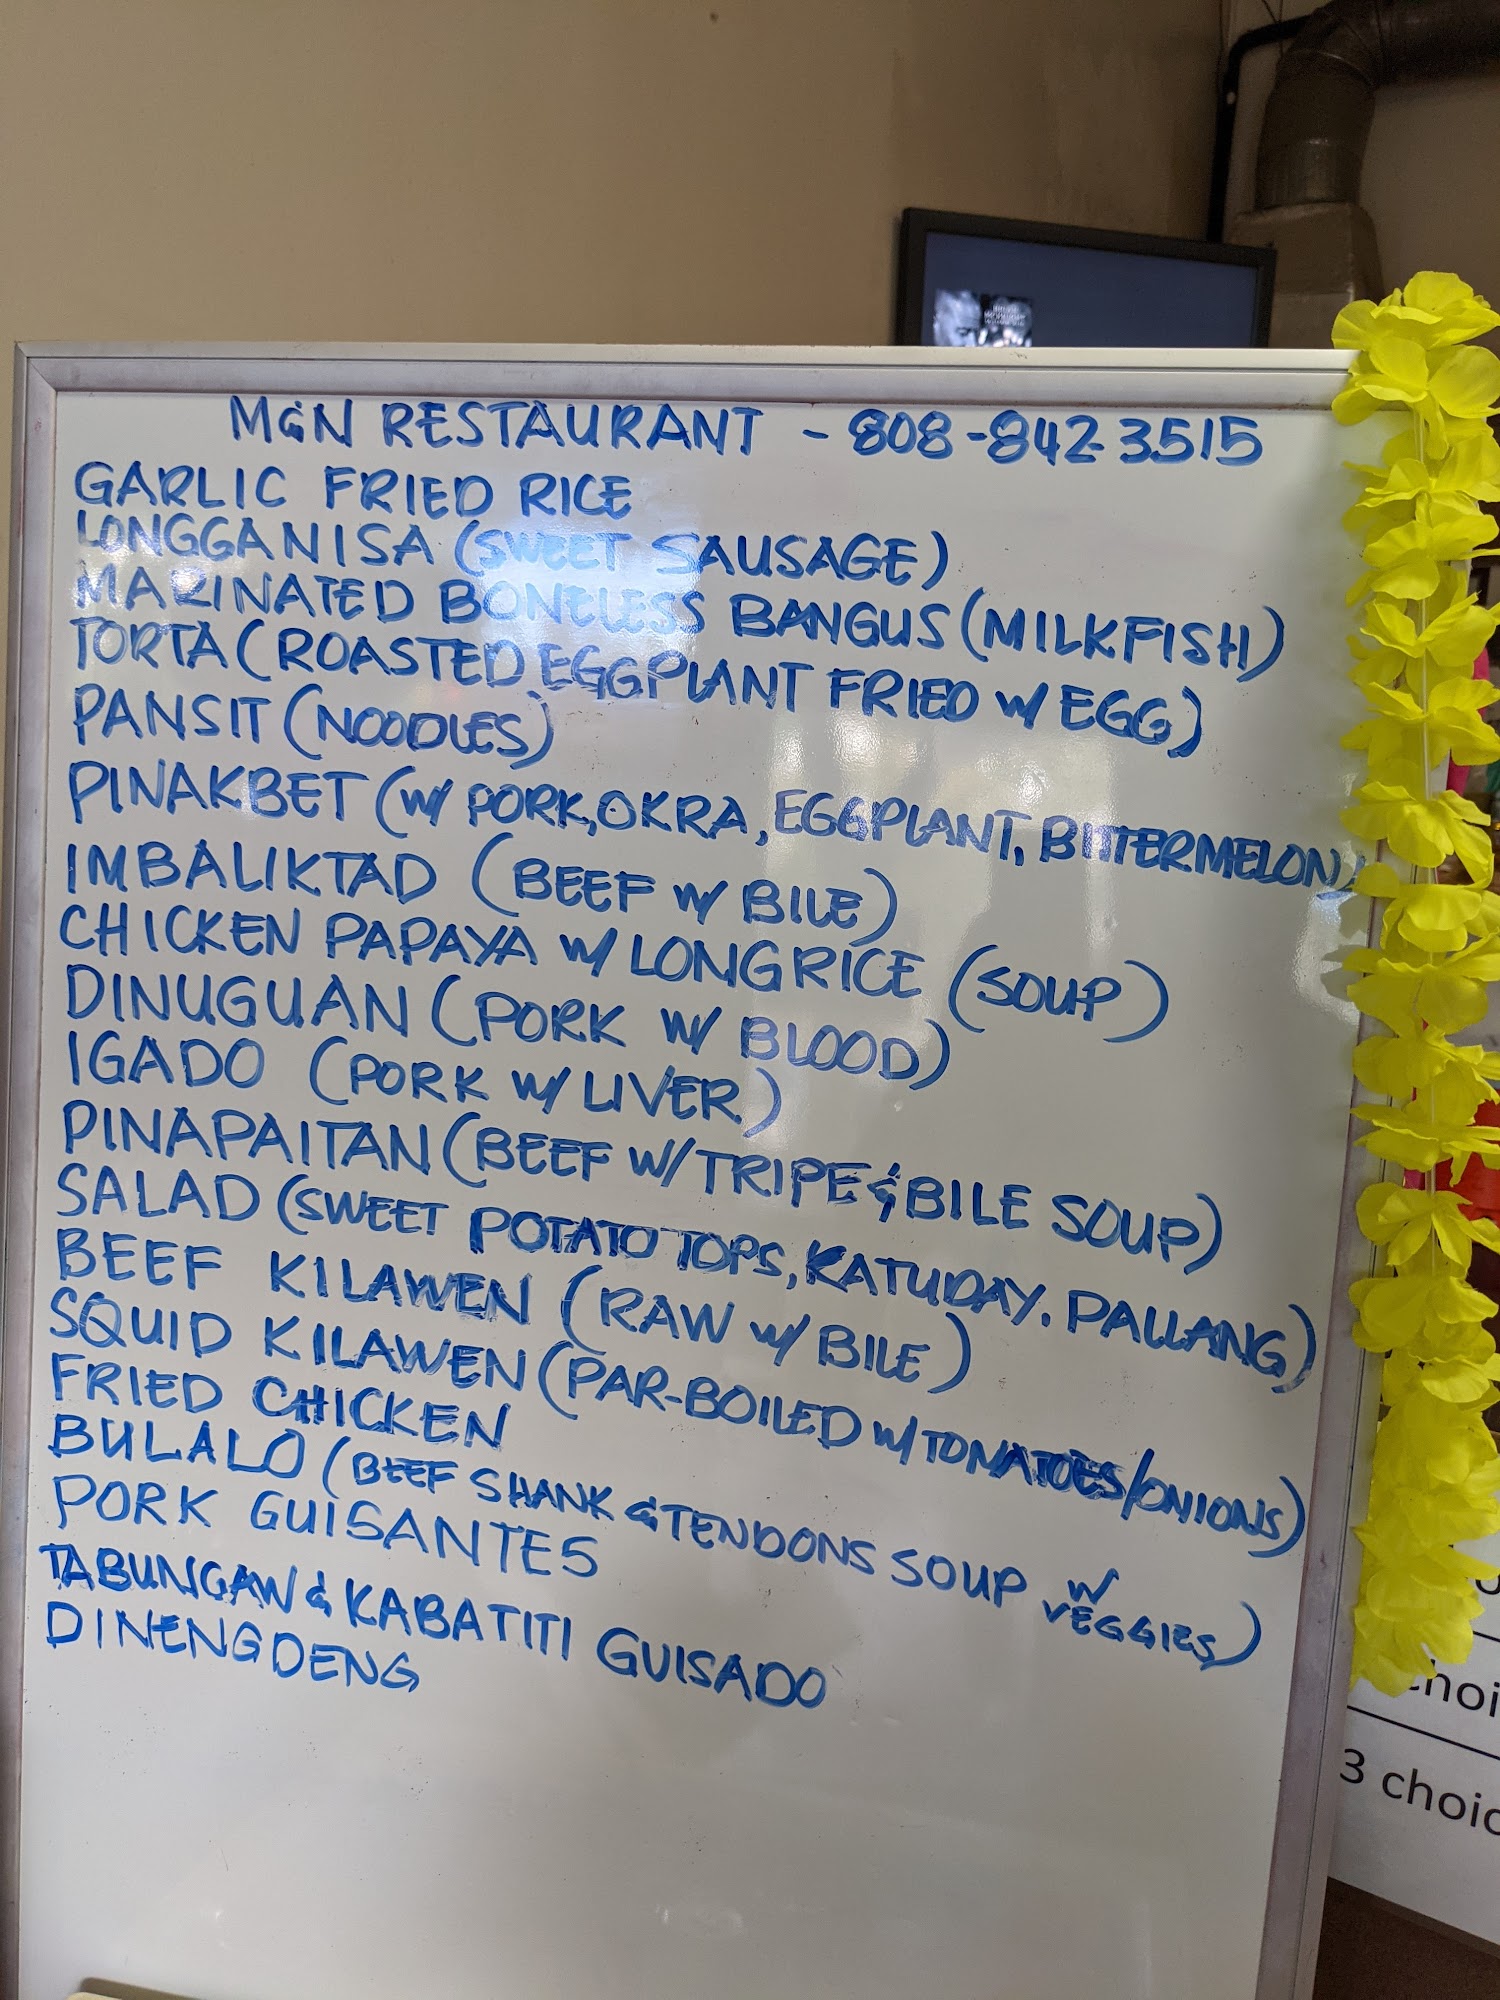 M&N RESTAURANT - 808-842-3515
GARLIC FRIED RICE
LONGGANISA (SWEET SAUSAGE)
MARINATED BONELESS BANGUS (MILKFISH)
TORTA (ROASTED EGGPLANT FRIED W/ EGG)
PANSIT (NOODLES)
PINAKBET (W/ PORK, OKRA, EGGPLANT, BITTERMELON)
IMBALIKTAD (BEEF W/ BILE)
CHICKEN PAPAYA W/ LONG RICE (SOUP)
DINUGUAN (PORK W/ BLOOD)
IGADO (PORK W/ LIVER)
PINAPAITAN (BEEF W/ TRIPE & BILE SOUP)
SALAD (SWEET POTATO TOPS, KATUDAY, PALLANG)
BEEF KILAWEN (RAW W/ BILE)
SQUID KILAWEN (PAR-BOILED W/ TOMATOES/ONIONS)
FRIED CHICKEN
BULALO (BEEF SHANK & TENDONS SOUP W/ VEGGIES)
PORK GUISANTES
TABUNGAW & KABATITI GUISADO
DINENGDENG
3